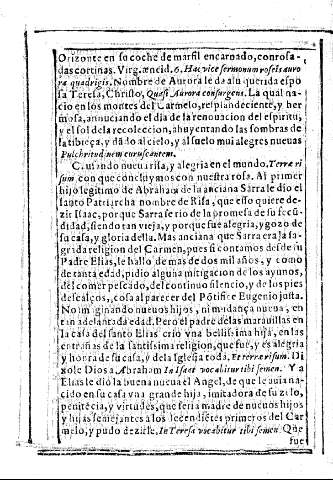 Orizonte en su coche de marfil encarnado, con rosa-
das cortinas. Virg. æneid. 6. Hac vice sermonum roseis auro
ra quadrigis. Nombre de Aurora le da a su querida espo
sa Teresa, Christo, Quasi Aurora consurgens. La qual na
cio en los montes del Carmelo, resplandeciente, y her
mosa, annuciando el dia de la renouacion del espiritu,
y el sol de la recoleccion, ahuyentando las sombras de
la tibieça, y dãdo al cielo, y al suelo mui alegres nueuas
Pulchritudinem euruscantem.
Causando nueua risa, y alegria en el mundo. Terræ ri
sum con que concluymos con nuestra rosa. Al primer
hijo legitimo de Abraham de la anciana Sarra le dio el
santo Patriarcha nombre de Risa, que esso quiere de-
zir Isaac, porque Sarra se rio de la promesa de su fecũ-
didad, siendo tan vieja, y porque fue alegria, y gozo de
su casa, y gloria della. Mas anciana que Sarra era la sa
grada religion del Carmen, pues si contamos desde su
Padre Elias, le hallo de mas de dos mil años, y como
de tanta edad, pidio alguna mitigacion de los ayunos,
del comer pescado, del continuo silencio, y de los pies
descalços, cosa al parecer del Põtifice Eugenio justa.
No imaginando nueuos hijos, ni mudança nueua, en
tan adelantada edad. Pero el padre de las marauillas en
la casa del santo Elias criò vna bellissima hija, en las
entrañas de la santissima religion, que fue, y es alegria
y honra de su casa, y de la Iglesia toda. Et terræ risum. Di
xole Dios a Abraham In Isaac vocabitur tibi semen. Y a
Elias le diò la buena nueua el Angel, de que le auia na-
cido en su casa vna grande hija, imitadora de su zelo,
penitẽcia, y virtudes, que seria madre de nueuos hijos
y hijas semejantes a los decendiẽtes primeros del Car
melo, y pudo dezirle, In Teresa vocabitur tibi semen. Que
fue